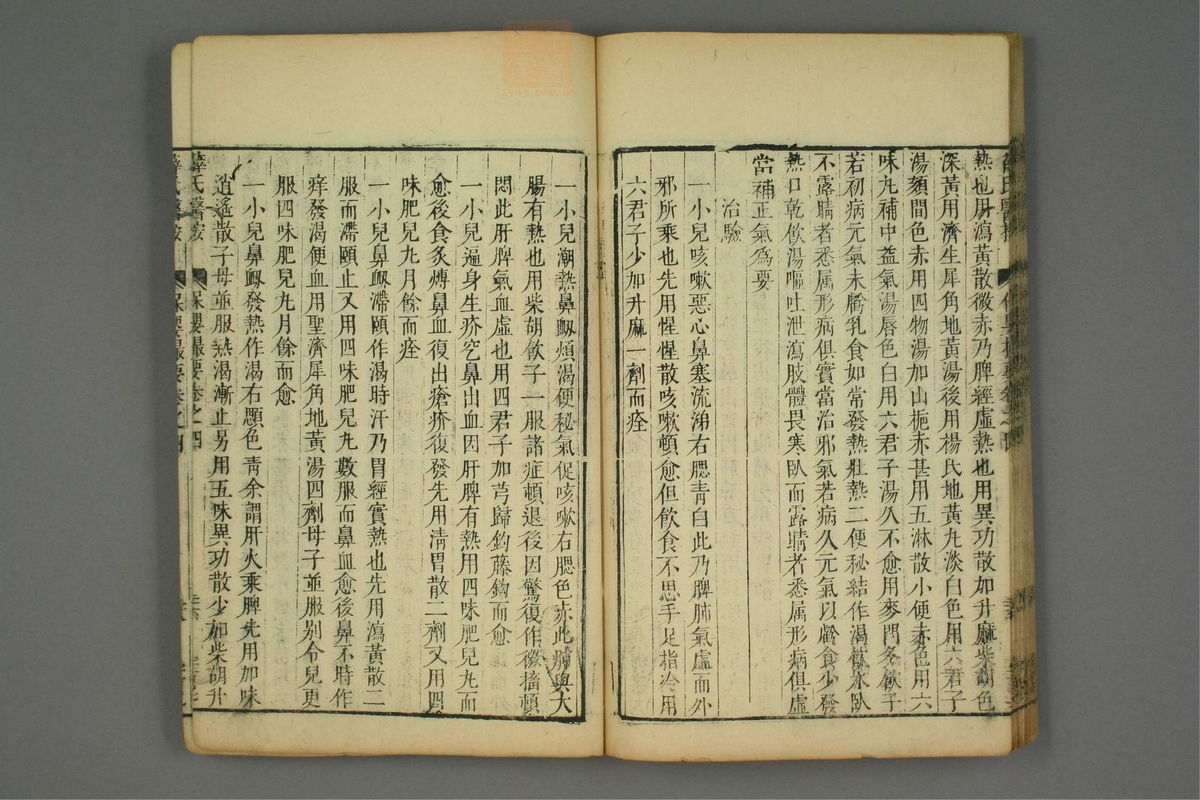 熱也用瀉黃散微赤乃脾經虛熱也用異功散加升麻柴胡色
深黃用濟生犀角地黃湯後用楊氏地黃九淡白色用六君子
湯頦間色赤用四物湯加山梔赤甚用五淋散小便赤色用六
味九補中益氣湯唇色白用六君子湯久不愈用麥門冬飲子
若初病元氣未虧乳食如常發熱壯熱二便秘結作渴飲水臥
不露睛者悉属形病俱實當治邪氣若病久元氣以虧食少發
熱口乾飲湯嘔吐泄瀉肢體畏寒臥而露睛者悉属形病俱虛
當補正氣為要
治驗
一小兒咳嗽惡心鼻塞流涕右腮青白此乃脾肺氣虛而外
邪所乘也先用惺惺散咳嗽頓愈但飲食不思手足指冷用
六君子少加升麻一劑而痊
一小兒潮熱鼻衂煩渴便秘氣促咳嗽右腮色赤此肺與大
腸有熱也用柴胡飲子一服諸症頓退後因驚復作微搐頓
悶此肝脾氣血虛也用四君子加芎歸鈎藤鈎而愈
一小兒遍身生疥穵鼻出血因肝脾有熱用四味肥兒九而
愈後食炙煿鼻血復出瘡疥復發先用清胃散二劑又用四
味肥兒九月餘而痊
一小兒鼻衂滯頤作渴時汗乃胃經實熱也先用瀉黃散二
服而滯頤止又用四味肥兒九數服而鼻血愈後鼻不時作
痒發渴便血用聖濟犀角地黃湯四劑母子並服别令兒更
服四味肥兒九月餘而愈
一小兒鼻衂發熱作渴右顋色青余謂肝火乘脾先用加味
逍遙散子母並服熱渴漸止另用五味異功散少加柴胡升
薛氏醫按 保嬰撮要卷之四